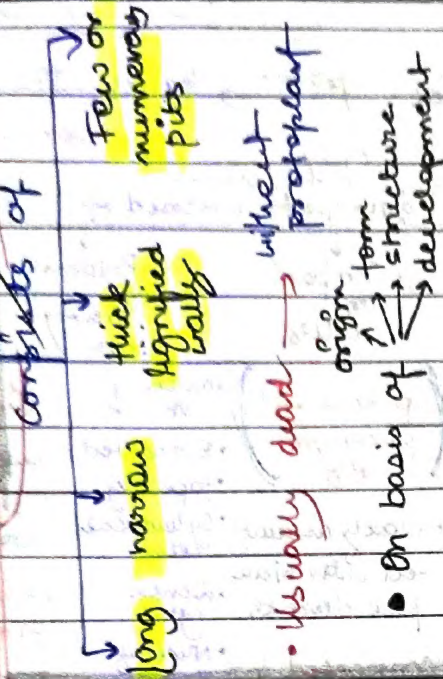 consists of
long
narrow
thick
lignified
walls
Few or
numerous
pits
• Usually dead → without
protoplast
• On basis of
origin
form
structure
development